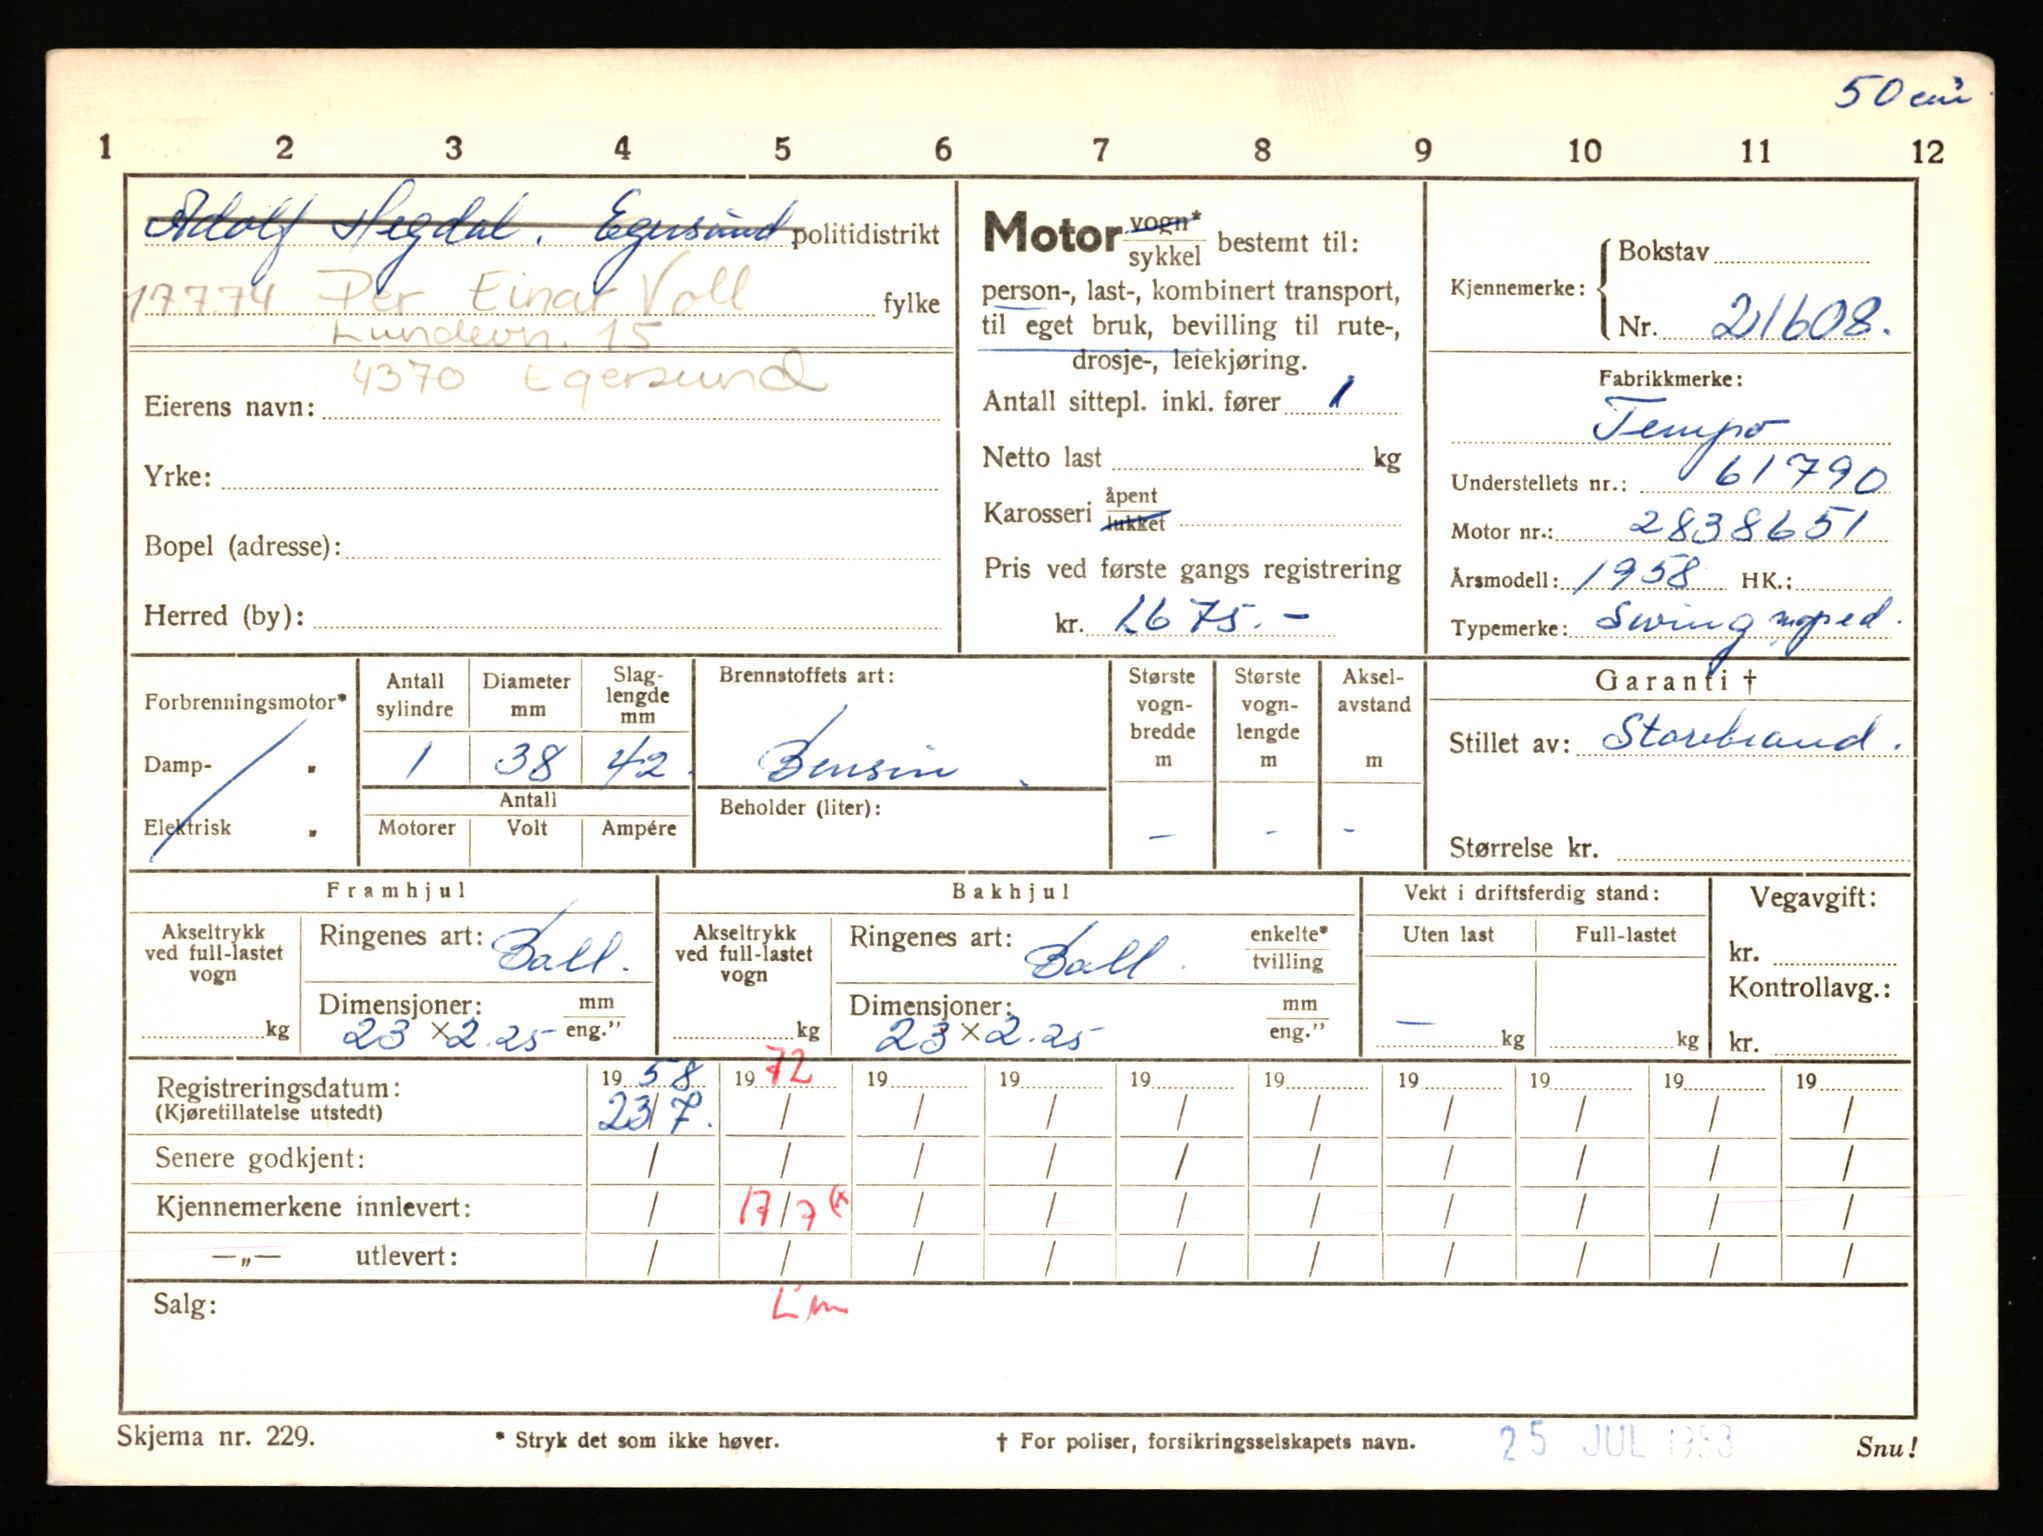 50 cm³
1 2 3 4 5 6 7 8 9 10 11 12
Adolf Hegdal. Egersund politidistrikt
17.7.74 Per Einar Voll fylke
Lundevn. 15
4370 Egersund
Eierens navn:
Yrke:
Bopel (adresse):
Herred (by):
Motor vogn* sykkel bestemt til:
person-, last-, kombinert transport,
til eget bruk, bevilling til rute-,
drosje-, leiekjøring.
Antall sittepl. inkl. fører 1
Netto last kg
Karosseri åpent lukket
Pris ved første gangs registrering
kr. 1675.-
Kjennemerke: Bokstav
Nr. 21608.
Fabrikkmerke:
Tempo
Understellets nr.: 61790
Motor nr.: 2838651
Årsmodell: 1958 HK.:
Typemerke: Swing moped.
Forbrenningsmotor*
Damp- "
Elektrisk "
Antall sylindre
Diameter mm
Slag-lengde mm
1 38 42.
Antall
Motorer Volt Ampére
Brennstoffets art:
Bensin
Beholder (liter):
Største vogn-bredde m
Største vogn-lengde m
Aksel-avstand m
- - -
Garanti †
Stillet av: Storebrand.
Størrelse kr.
Framhjul
Akseltrykk ved full-lastet vogn
kg
Ringenes art: Ball.
Dimensjoner: mm eng."
23 x 2.25
Bakhjul
Akseltrykk ved full-lastet vogn
kg
Ringenes art: Ball. enkelte* tvilling
Dimensjoner: mm eng."
23 x 2.25
Vekt i driftsferdig stand:
Uten last Full-lastet
- kg kg
Vegavgift:
kr.
Kontrollavg.:
kr.
Registreringsdatum: 1958 1972 19 19 19 19 19 19 19 19
(Kjøretillatelse utstedt) 23/7. / / / / / / / / /
Senere godkjent: / / / / / / / / / /
Kjennemerkene innlevert: / 17/7 / / / / / / / /
—„— utlevert: / / / / / / / / / /
Salg:
Skjema nr. 229.
* Stryk det som ikke høver.
† For poliser, forsikringsselskapets navn.
25 JUL 1958
Snu!